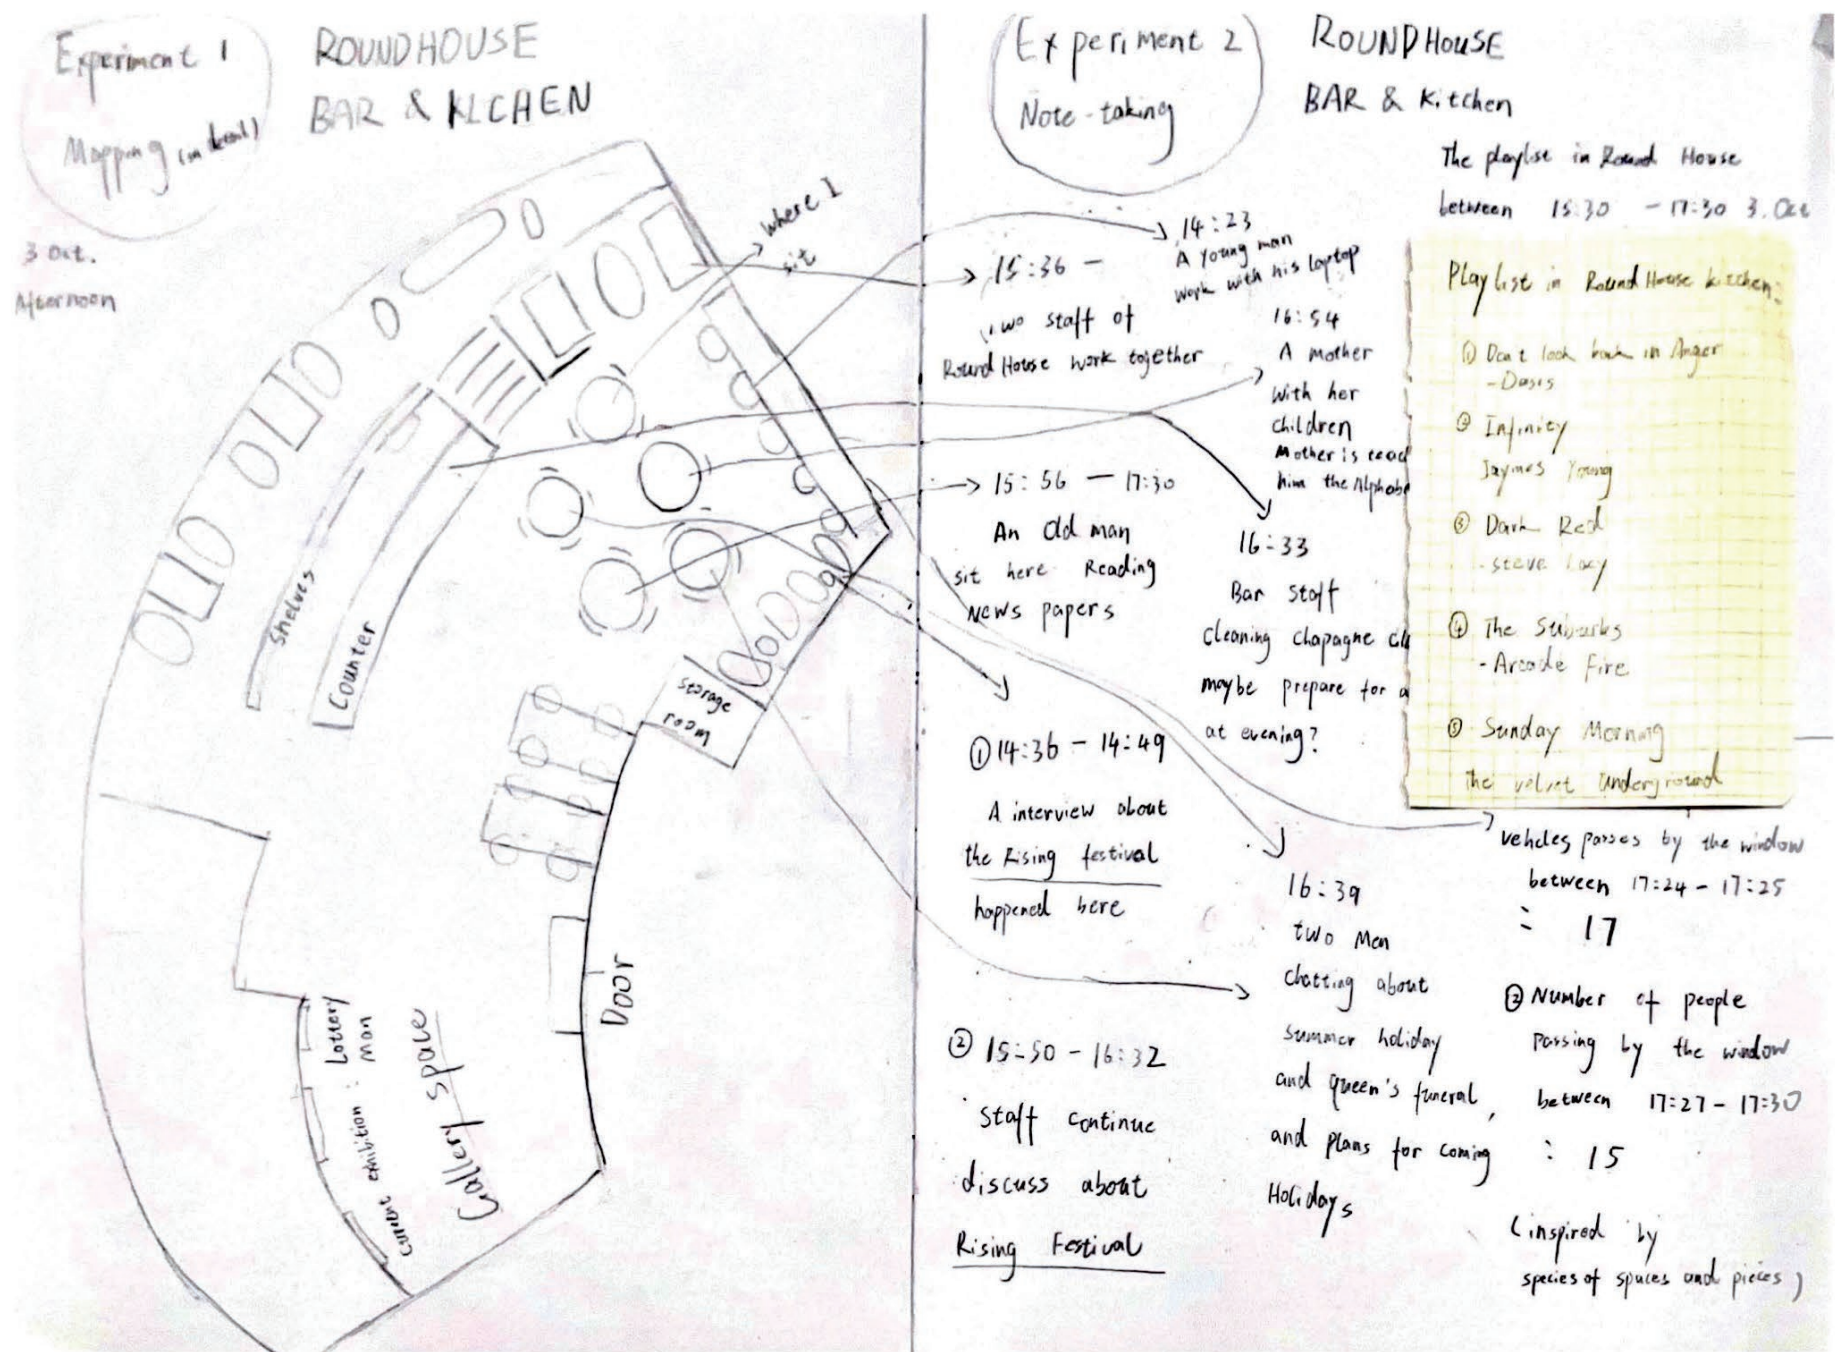 Experiment 1
Mapping (in detail)
ROUNDHOUSE
BAR & KLCHEN
3 Oct.
Afternoon
where I
sit
Shelves
Counter
storage
room
Door
Gallery space
current exhibition : Lottery
Man
Experiment 2
Note-taking
ROUNDHOUSE
BAR & Kitchen
The playlist in Round House
between 15:30 - 17:30 3. Oct
14:23
A Young man
work with his laptop
15:36 -
Two staff of
Round House work together
16:54
A mother
with her
children
Mother is teac
him the Alphabe
15:56 - 17:30
An Old man
sit here Reading
News papers
16:33
Bar staff
cleaning chapagne
maybe prepare for a
at evening?
① 14:36 - 14:49
A interview about
the Rising festival
happened here
② 15:50 - 16:32
Staff continue
discuss about
Rising Festival
16:39
two Men
Chatting about
summer holiday
and queen's funeral,
and plans for coming
Holidays
Playlist in Round House kitchen:
① Don't look back in Anger
- Oasis
② Infinity
Jaymes Young
③ Dark Red
- steve Lacy
④ The Suburbs
- Arcade Fire
⑤ Sunday Morning
The velvet Underground
vehcles passes by the window
between 17:24 - 17:25
: 17
② Number of people
passing by the window
between 17:27 - 17:30
: 15
(inspired by
species of spaces and pieces)